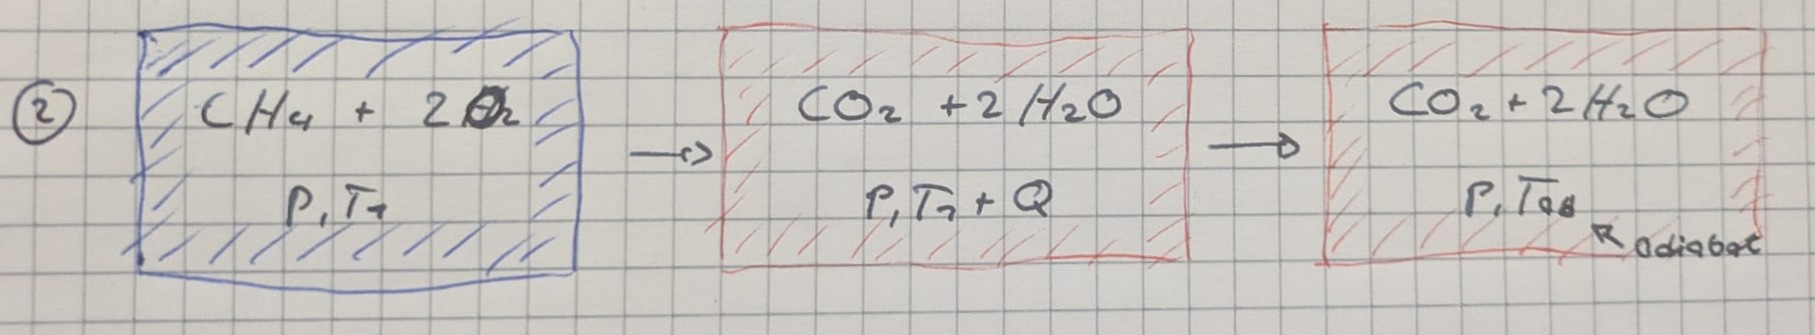 ②
CH₄ + 2O₂
P, T₁
→
CO₂ + 2H₂O
P, T₁ + Q
→
CO₂ + 2H₂O
P, Tₐₔ
adiabat